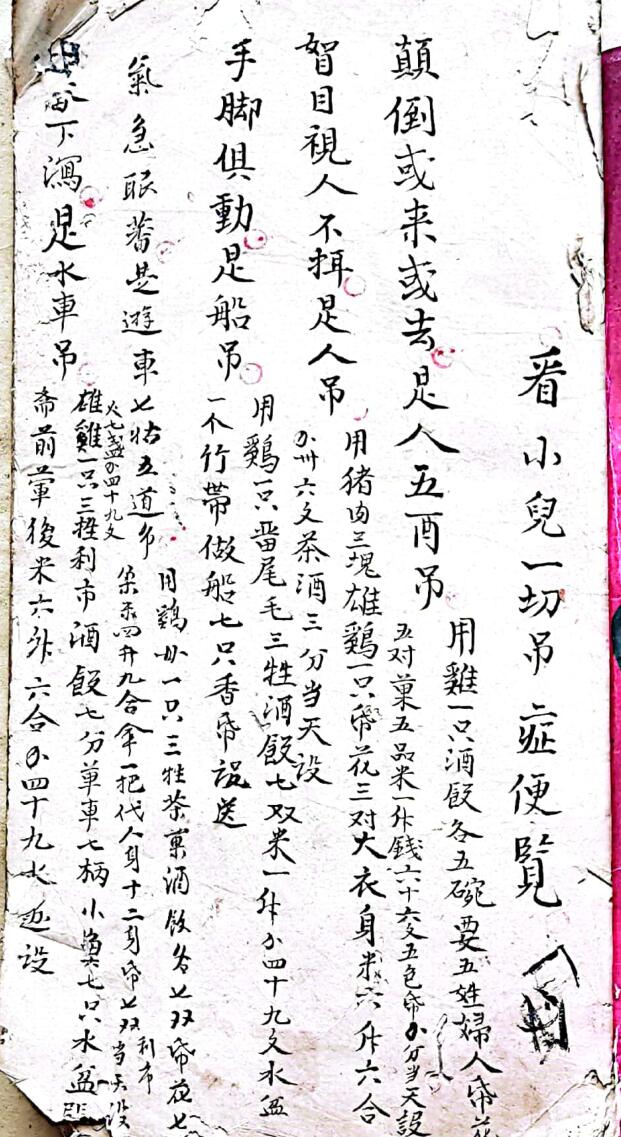 看小兒一切吊症便覽
顛倒或来或去是人五酉吊
用雞一只酒飯各五碗要五姓婦人帋花
五对菓五品米一升錢六十六文五色帋分当天設
眢目視人不揖是人吊
用猪肉三塊雄鷄一只帋花三对大衣身米六升六合
卅六文茶酒三分当天設
手脚俱動是船吊
用鷄一只畨尾毛三牲酒飯七双米一升四十九文水盆
一个竹帶做船七只香帋設送
氣急眼萶是遊車七姑五道吊
用鷄一只三牲茶菓酒飯各七双帋花七
四升九合伞一把代人身十二身帋七双利市当天設
火七盏四十九文
下瀉是水車吊
雄雞一只三牲利市酒飯七分草車七柄小魚七只水盆
斋前葷後米六升六合四十九文設